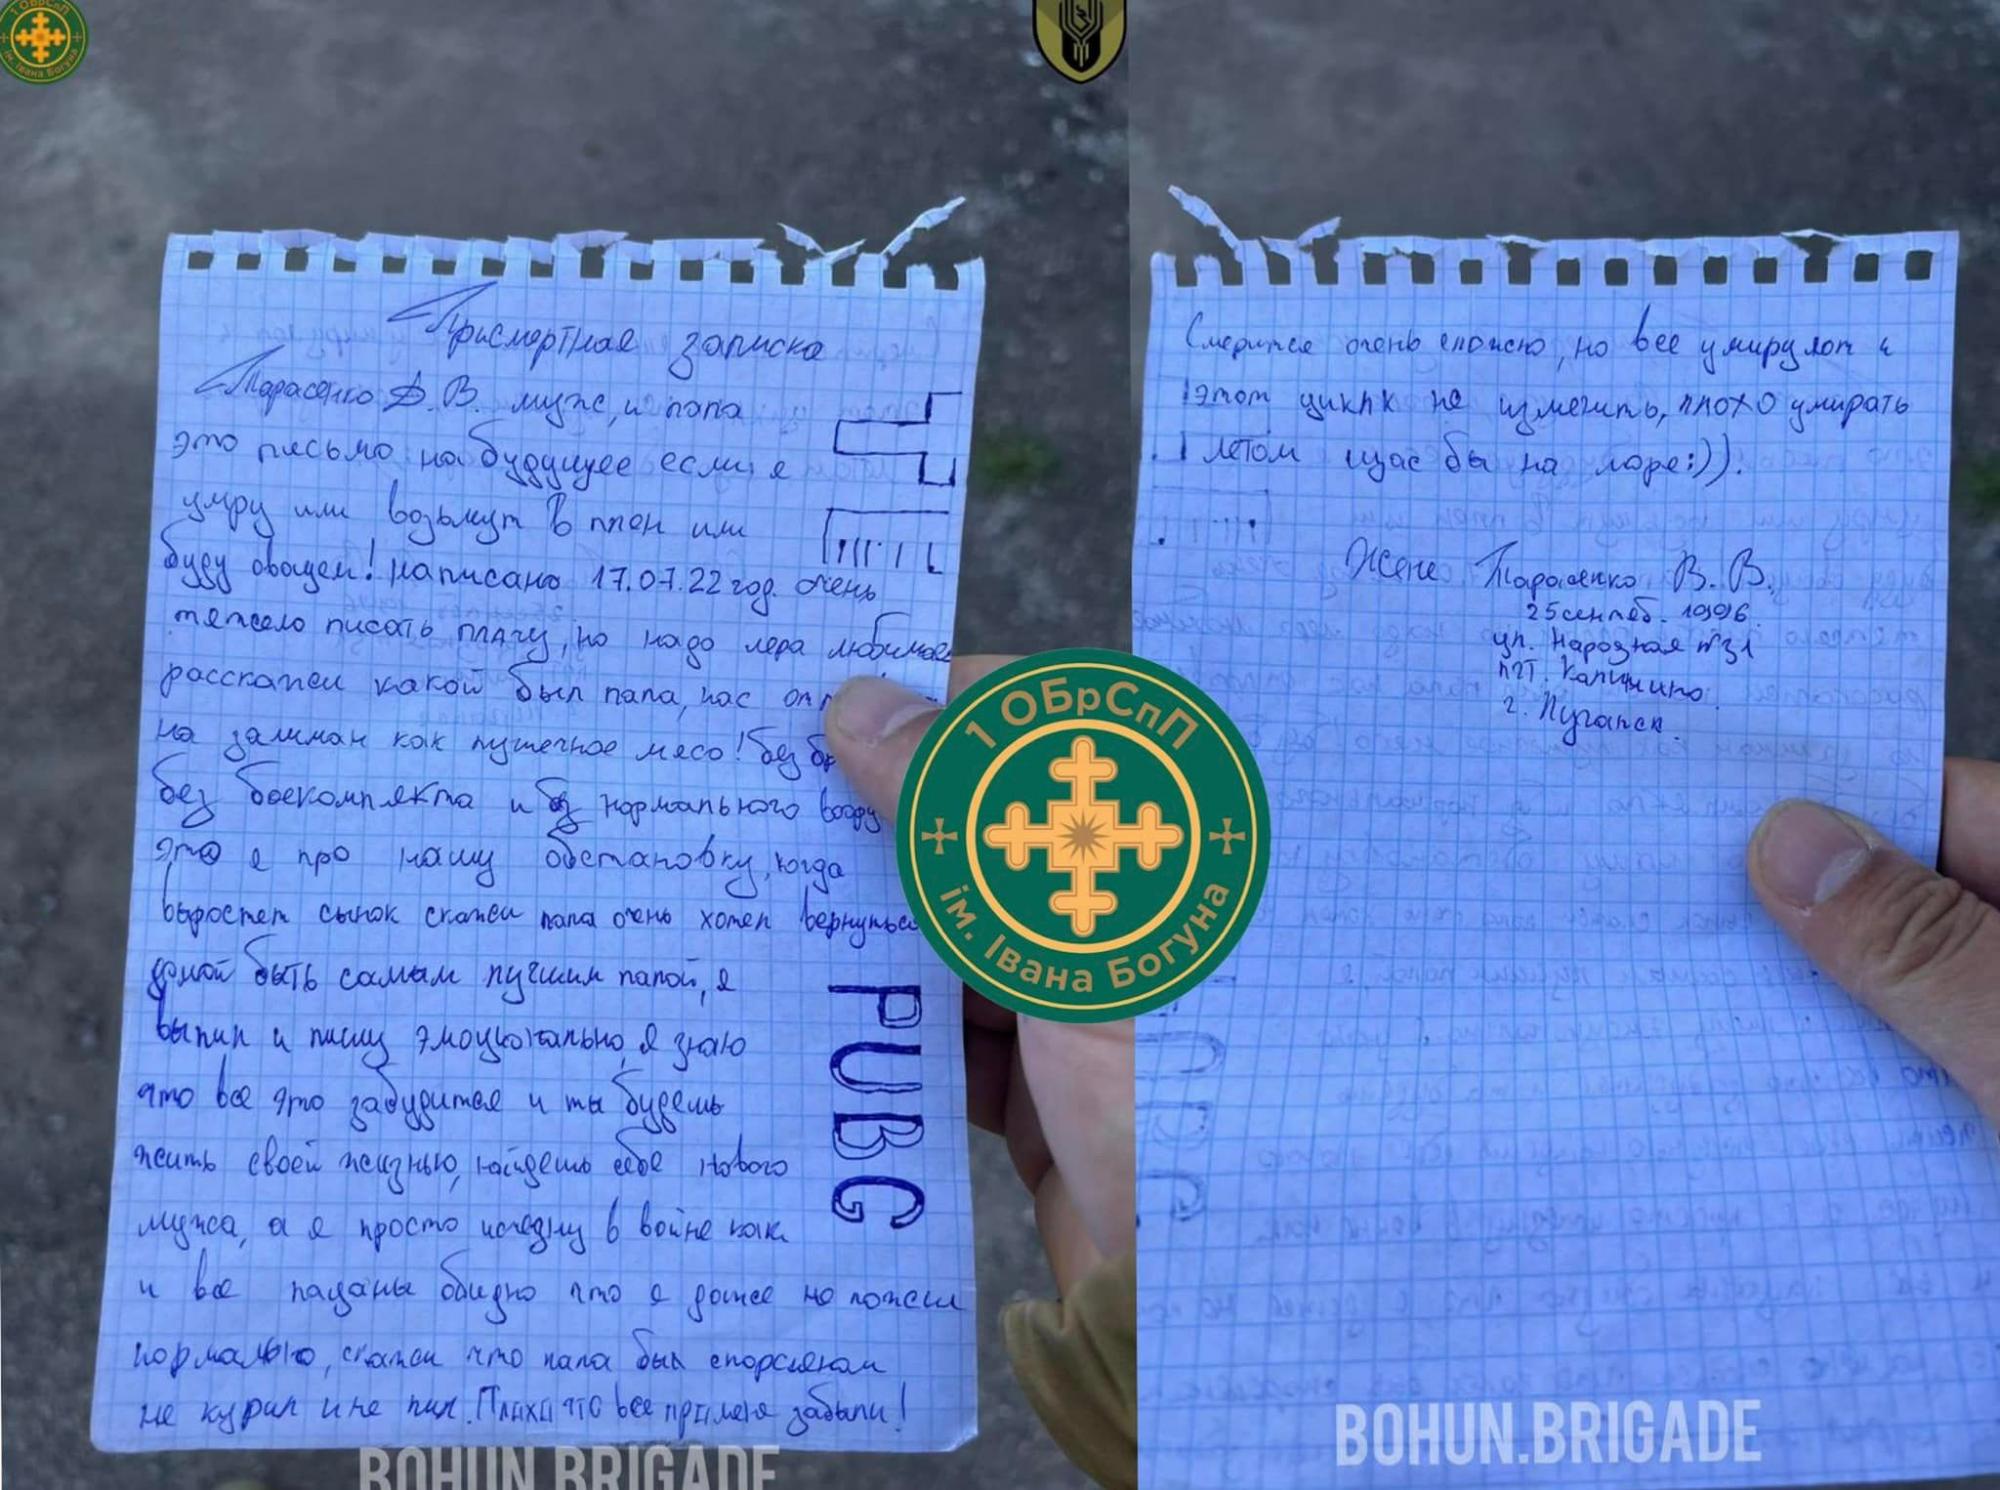 1 ОБрСпП
ім. Івана Богуна
Присмортная записка
Тарасенко Д. В. муж, и папа
это письмо на будущее если я
умру или возьмут в плен или
буду овощем! написано 17.07.22 год. очень
тяжело писать плачу, но надо лера любимая
расскажеш какой был папа, нас
на зашман как пушечное мясо! без
без боекомплекта и без нормального воору
это я про нашу обстановку, когда
выростет сынок скажеш папа очень хотел вернуться
домой быть самым лучшим папой, я
выпил и пишу эмоционально, я знаю
что все это забудится и ты будешь
жить своей жизнью, найдешь себе нового
мужа, а я просто исчезну в войне как
и все пацаны обидно что я даже не пожил
нормально, скажеш что папа был спорсменом
не курил и не пил. Плоха что все про меня забыли!
PUBG
BOHUN.BRIGADE
1 ОБрСпП
ім. Івана Богуна
Смерится очень сложно, но все умирулот и
этот цикпк не изменить, плохо умирать
летом щас бы на море:)).
Жене Тарасенко В. В.
25 сентяб. 1996.
ул. Народная №31
пгт. Калинино.
г. Луганск.
BOHUN.BRIGADE